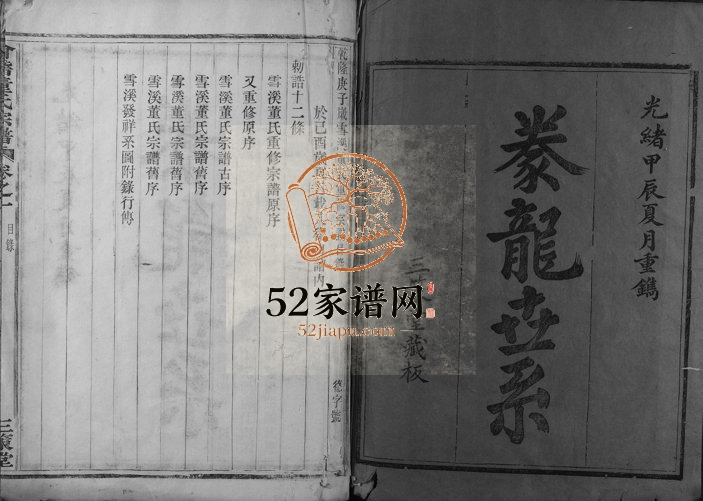 光緒甲辰夏月重鐫
豢龍世系
藏板
乾隆庚子歲雪溪
於己酉
勅誥十二條
雪溪董氏重修宗譜原序
又重修原序
雪溪董氏宗譜古序
雪溪董氏宗譜舊序
雪溪董氏宗譜舊序
雪溪董氏宗譜舊序
雪溪發祥系圖附錄行傳
董氏宗譜
卷之一
目錄
三策堂
52家谱网
52jiapu.com